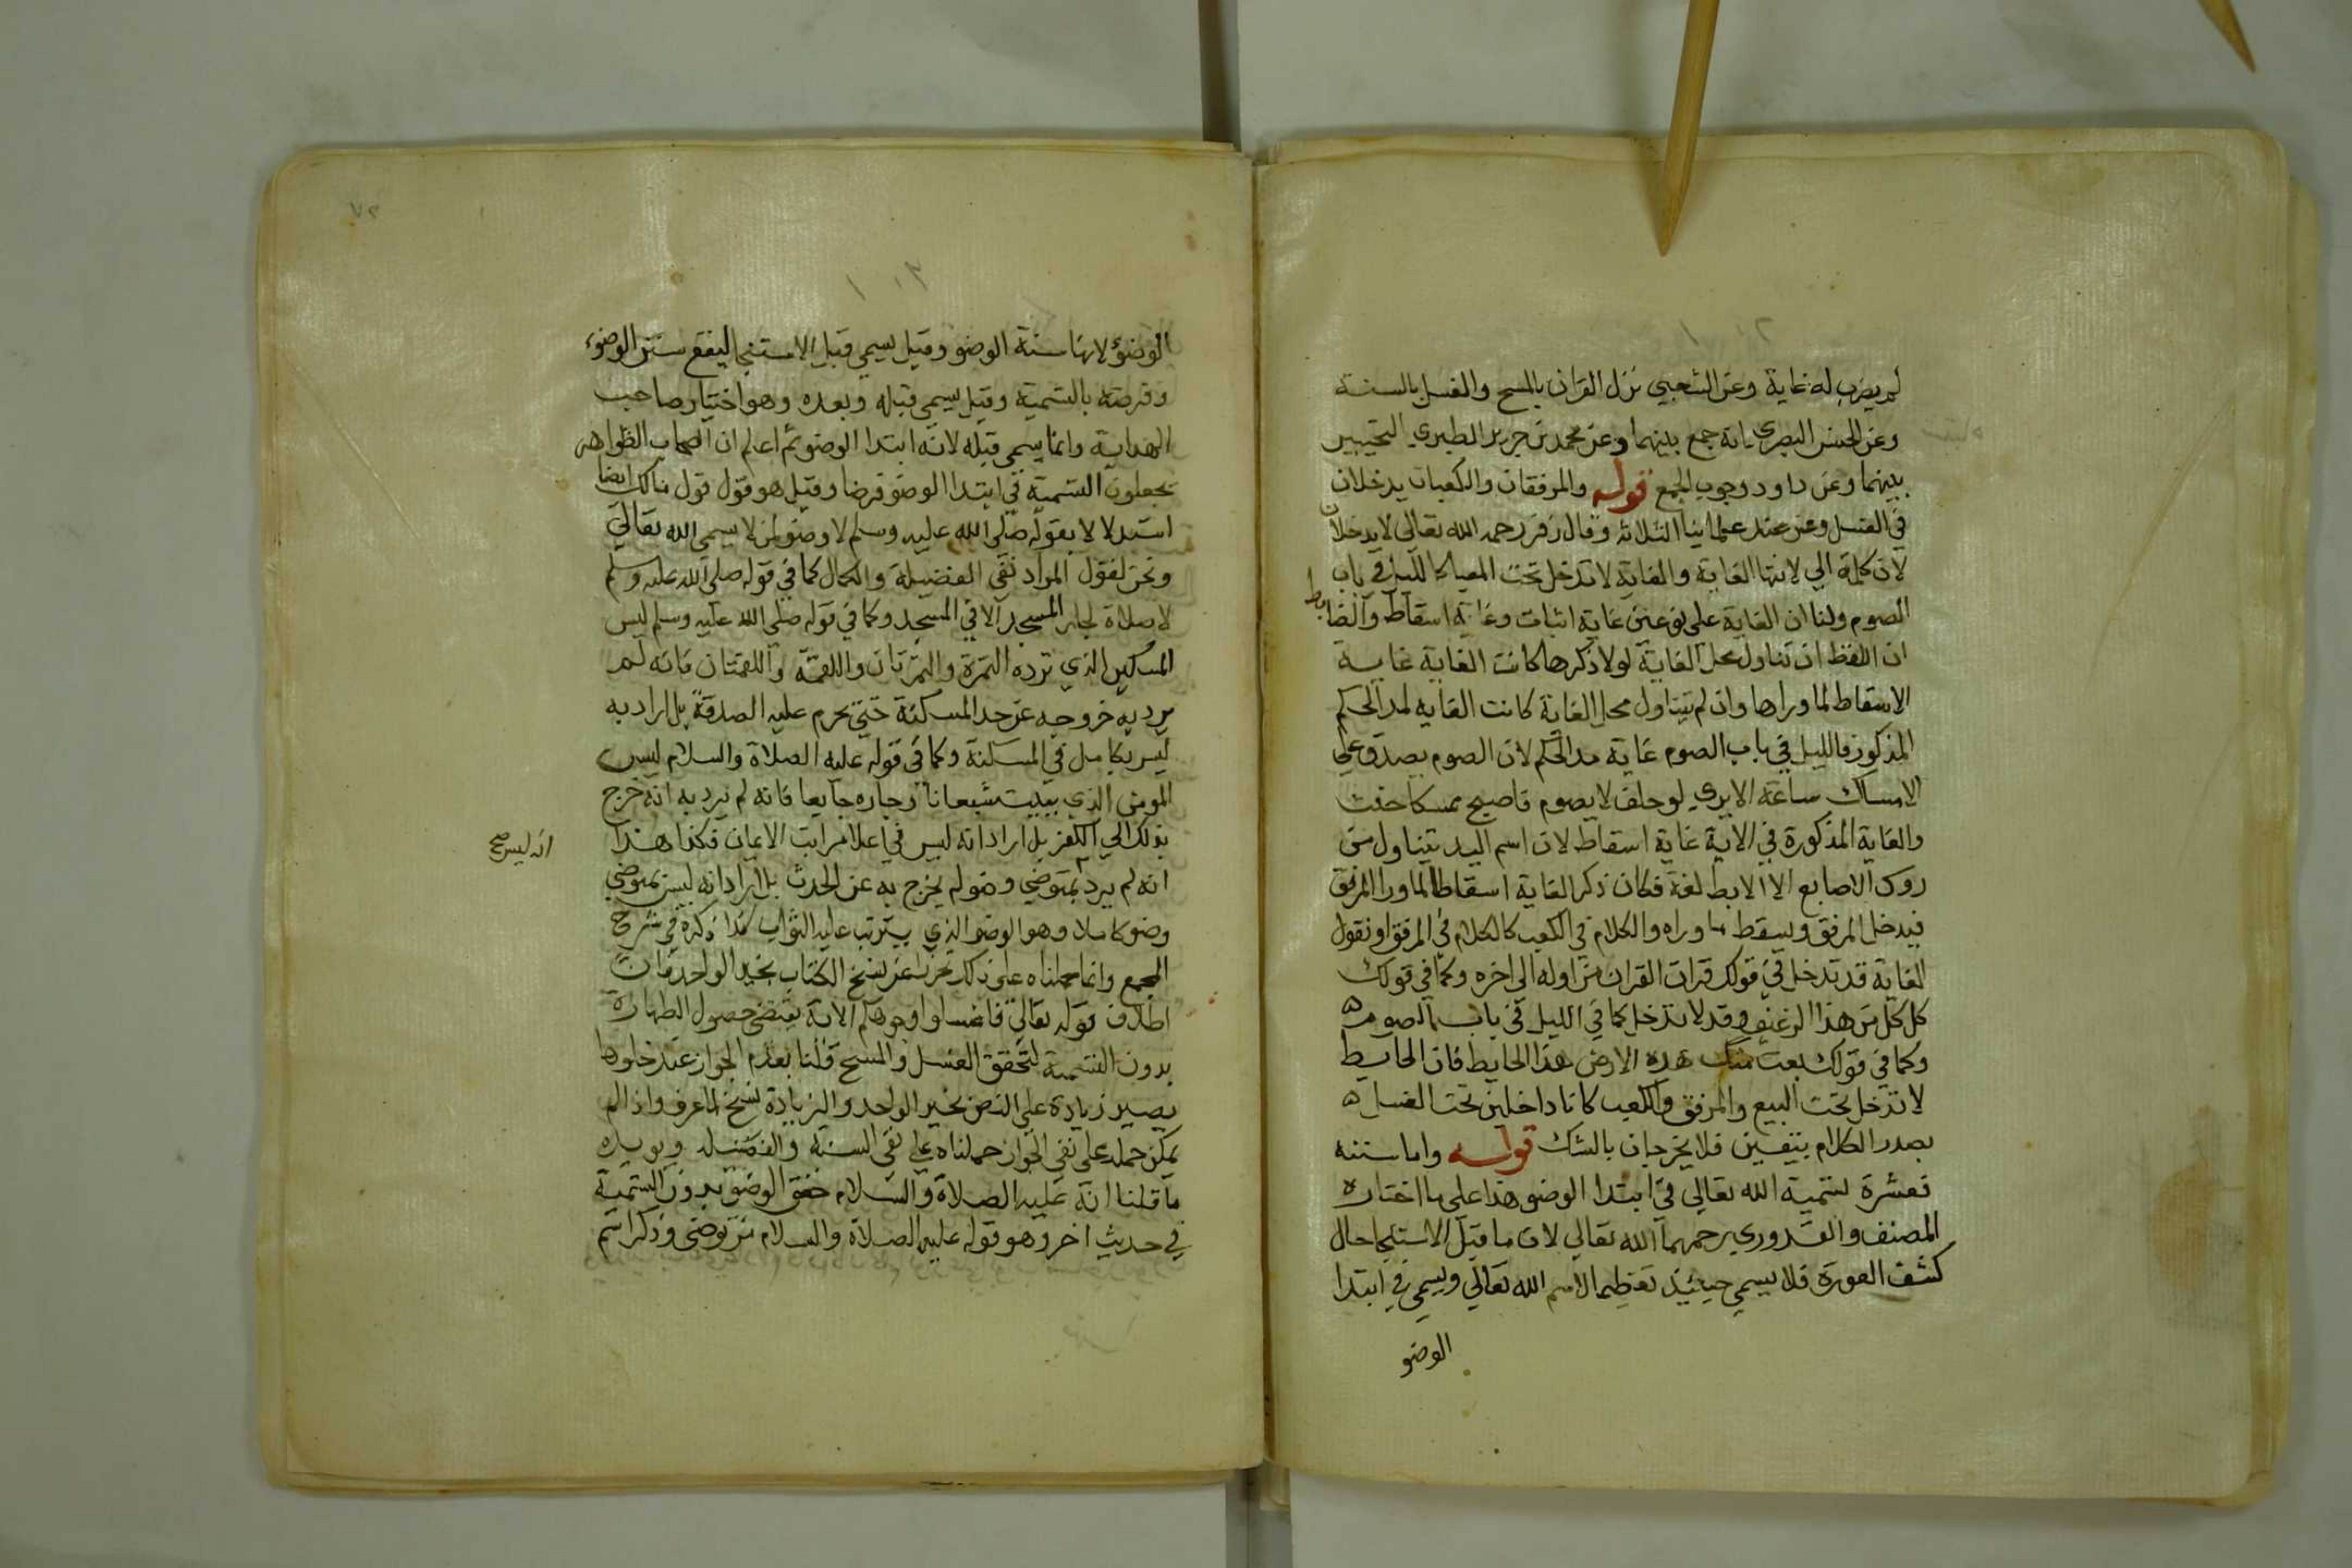 لم يضرب له غاية وعن الشعبي نزل القران بالمسح والغسل بالسنة
وعن الحسن البصري انه جمع بينهما وعن محمد بن جرير الطبري التخيير
بينهما وعن داود وجوب الجمع قوله والمرفقان والكعبان يدخلان
في الغسل وعن عند علماينا الثلاثة وقال زفر رحمه الله تعالى لا يدخلان
لان كلمة الي لانتها الغاية والغاية لا تدخل تحت المغيا كالليل في باب
الصوم ولنا ان الغاية على نوعين غاية اثبات وغاية اسقاط والضابط
ان اللفظ ان تناول محل الغاية لولا ذكرها كانت الغاية غاية
الاسقاط لما وراها وان لم يتناول محل الغاية كانت الغايه لمد الحكم
المذكور فالليل في باب الصوم غاية مد الحكم لان الصوم يصدق على
الامساك ساعة الا يري لو حلف لا يصوم فاصبح ممسكا حنث
والغاية المذكورة في الاية غاية اسقاط لان اسم اليد يتناول من
روس الاصابع الا الابط لغة فكان ذكر الغاية اسقاطا لما ورا المرفق
فيدخل المرفق ويسقط ما وراه والكلام في الكعب كالكلام في المرفق او نقول
الغاية قد تدخل في قولك قرات القران من اوله الى اخره وكما في قولك
كل كل من هذا الرغيف وقد لا تدخل كما في الليل في باب الصوم ه
وكما في قولك بعت منك هذه الارض هذا الحايط فان الحايط
لا تدخل تحت البيع والمرفق والكعب كانا داخلين تحت الغسل ه
بصدر الكلام بيقين فلا يخرجان بالشك قوله واما سننه
فعشرة تسمية الله تعالى في ابتدا الوضو هذا على ما اختاره
المصنف والقدوري رحمهما الله تعالي لان ما قبل الاستنجا حال
كشف العورة فلا يسمي حينئذ تعظيما لاسم الله تعالي ويسمي في ابتدا
الوضو
الوضؤ لانها سنة الوضو وقيل يسمي قبل الاستنجا ليقع سنن الوضوء
وفرضه بالتسمية وقيل يسمي قبله وبعده وهو اختيار صاحب
الهداية وانما يسمى قبله لانه ابتدا الوضو ثم اعلم ان اصحاب الظواهر
يجعلون التسمية في ابتدا الوضو فرضا وقيل هو قول قول مالك ايضا
استدلالا بقوله صلى الله عليه وسلم لا وضو لمن لا يسمى الله تعالي
ونحن نقول المراد نفي الفضيلة والكمال كما في قوله صلى الله عليه وسلم
لا صلاة لجار المسجد الا في المسجد وكما في قوله صلى الله عليه وسلم ليس
المسكين الذي ترده التمرة والتمرتان واللقمة واللقمتان فانه لم
يرد به خروجه عن حد المسكنة حتى يحرم عليه الصدقة بل اراد به
ليس بكامل في المسكنة وكما في قوله عليه الصلاة والسلام ليس
المومن الذي يبيت شبعانا وجاره جايعا فانه لم يرد به انه خرج
بذلك الي الكفر بل اراد انه ليس في اعلا مراتب الايمان فكذا هذا
انه ليس صح
انه لم يرد بمتوضي وضوله يخرج به عن الحدث بل اراد انه ليس بمتوضي
وضو كاملا وهو الوضو الذي يترتب عليه الثواب كذا ذكره في شرح
المجمع وانما حملناه على ذلك تحرزا عن نسخ الكتاب بخبر الواحد فان
اطلاق قوله تعالي فاغسلوا وجوهكم الاية يقتضى حصول الطهارة
بدون التسمية لتحقق الغسل والمسح فلنا بعدم الجواز عند خلوها
يصير زيادة على النص بخبر الواحد والزيادة نسخ لما عرف واذا لم
يمكن حمله على نفي الجواز حملناه علي نفى السنة والفضيلة ويويده
ما قلنا انه عليه الصلاة والسلام حقق الوضو بدون التسمية
في حديث اخر وهو قوله عليه الصلاة والسلام من توضى وذكر اسم